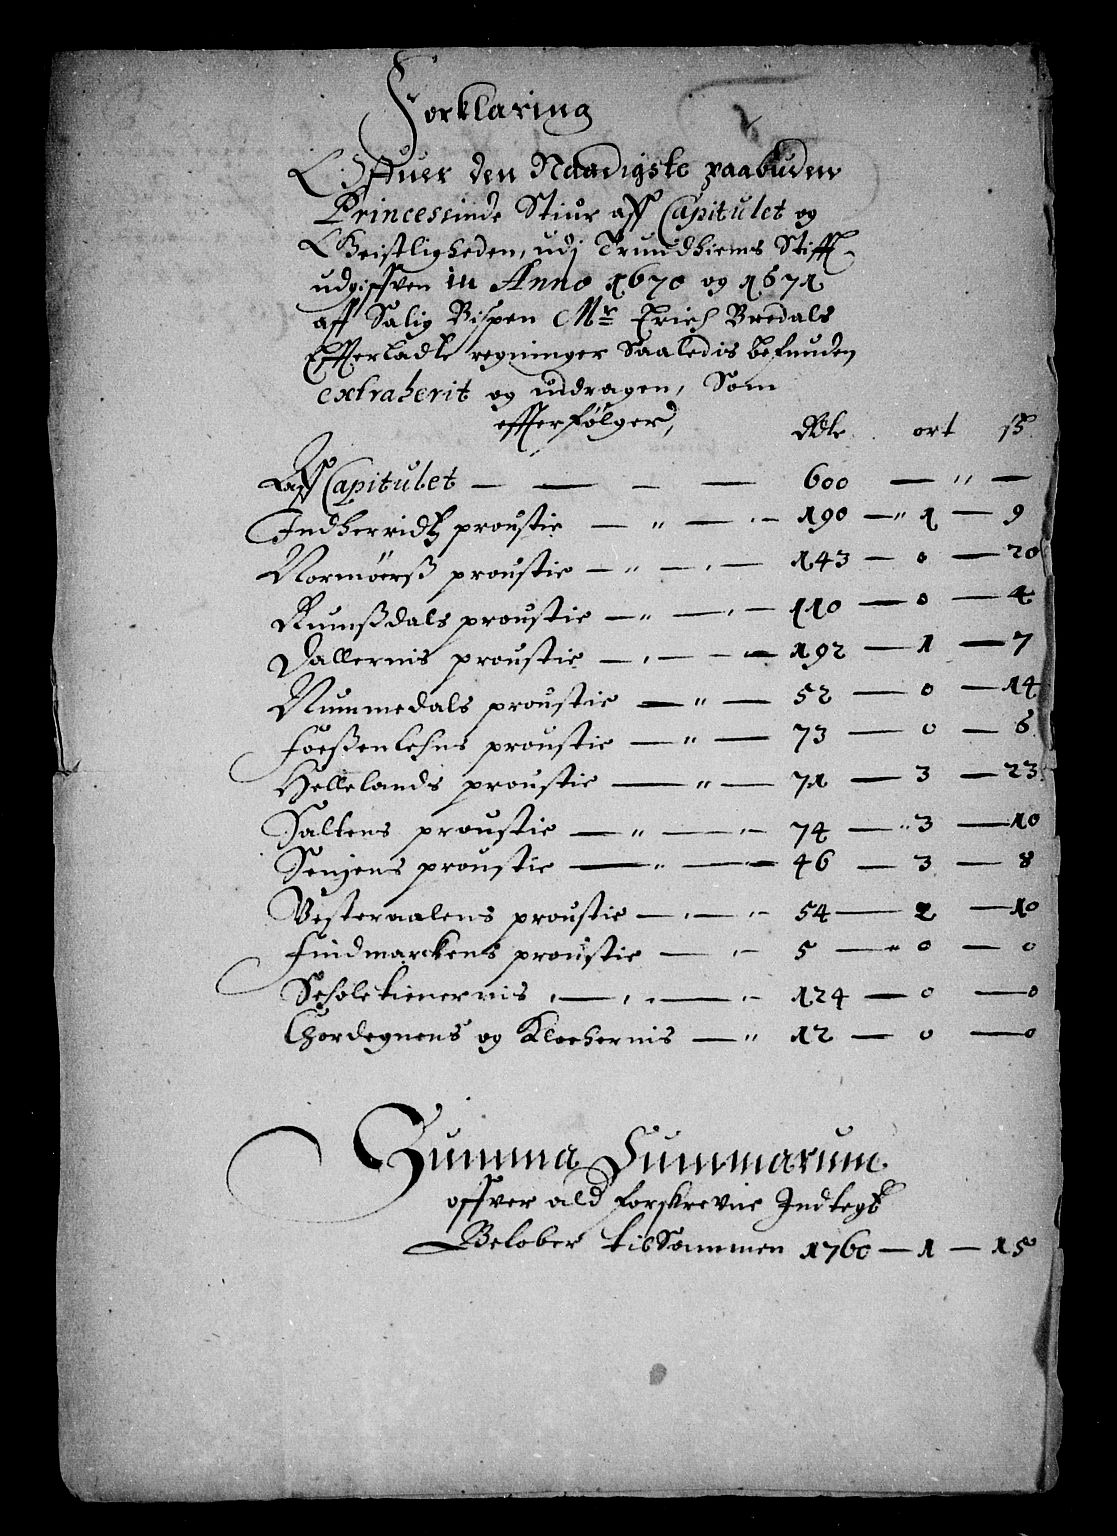 Forklaring
Offuer den Naadigste paabudene
Princessinde Stiur aff Capitulet og
Geistligheden, udj Trundhiems Stifft
udgiffven in Anno 1670 og 1671
aff Salig Bispen Mr Erich Bredals
Effterladte regninger Saaledis befunden
extraherit og uddragen, Som
effterfølger,
Rdlr ort ß
Aff Capitulet — — — — 600 — " —
Indherridtz proustie — " — " — 190 — " 1 — 9
Normøerß proustie — " — " — 143 — 0 — 20
Rumßdals proustie — " — " — 110 — 0 — 4
Dallernis proustie — " — — 192 — 1 — 7
Nummedals proustie — " — 52 — 0 — 14
Foeßenlehns proustie — " — 73 — 0 — 6
Hellelands proustie — " — 71 — 3 — 23
Saltens proustie — " — " — 74 — " 3 — 10
Senjens proustie — " — — 46 — 3 — 8
Vesteraalens proustie — " — " — 54 — 2 — 10
Findmarckens proustie — " — 5 — " 0 — 0
Scholetienernis " — " — " — 124 — 0 — 0
Chordegnens og Klochernis — " 12 — 0 — 0
Summa Summarum
offver ald forskrevne Indtegt
Beløber tilsammen 1760 — 1 — 15